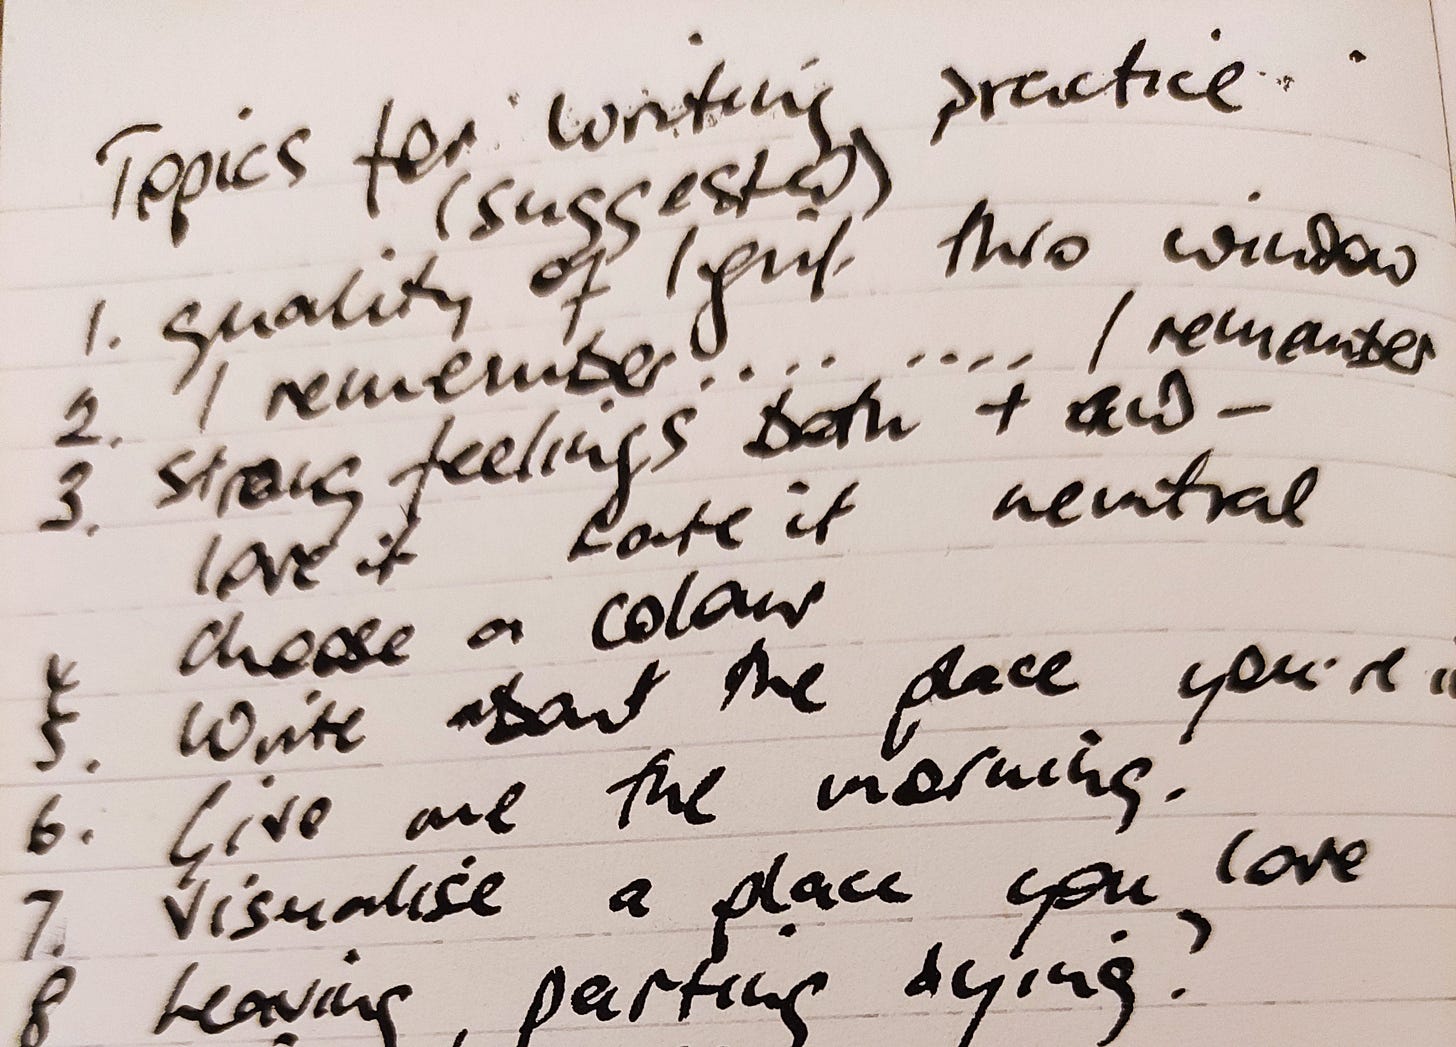 Topics for writing practice
(suggested)
1. quality of light thro window
2. I remember..... .... I remember
3. strong feelings both + and -
love it hate it neutral
4 choose a colour
5. Write about the place you're
6. Give me the morning.
7. Visualise a place you love
8 Leaving, parting, dying?